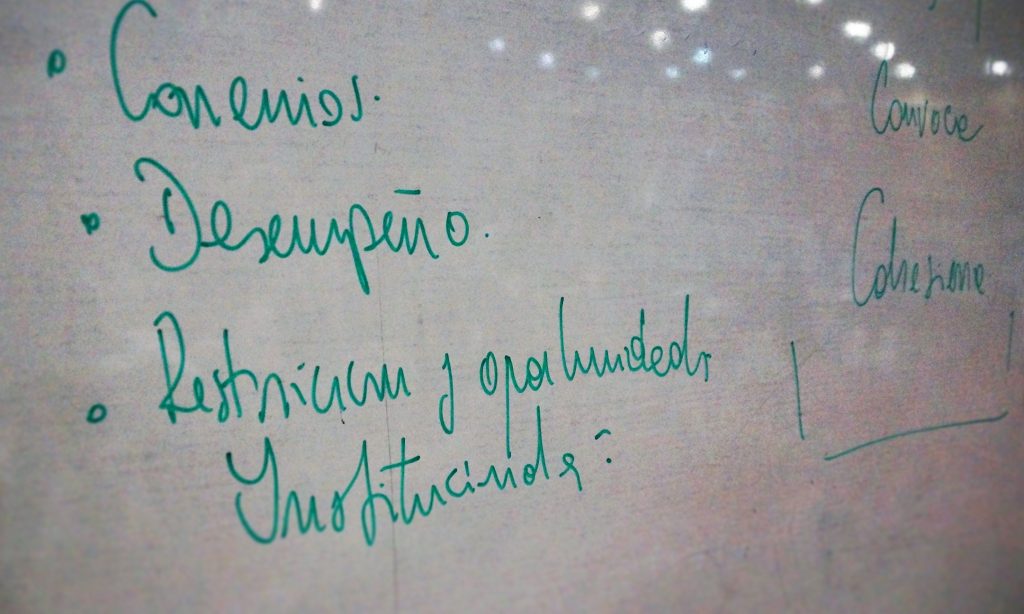 • Convenios.
• Desempeño.
• Restriccion y oportunidades
Institucionales
Convoce
Cohesione